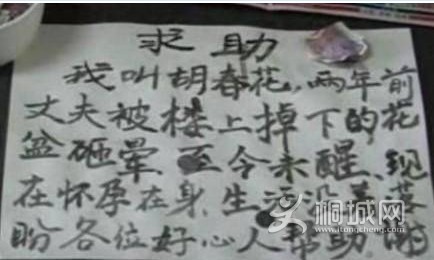 求助
我叫胡春花，两年前
丈夫被楼上掉下的花
盆砸晕.至今未醒.现
在怀孕在身.生活没着落
盼各位好心人帮助.谢
桐城网
itongcheng.com